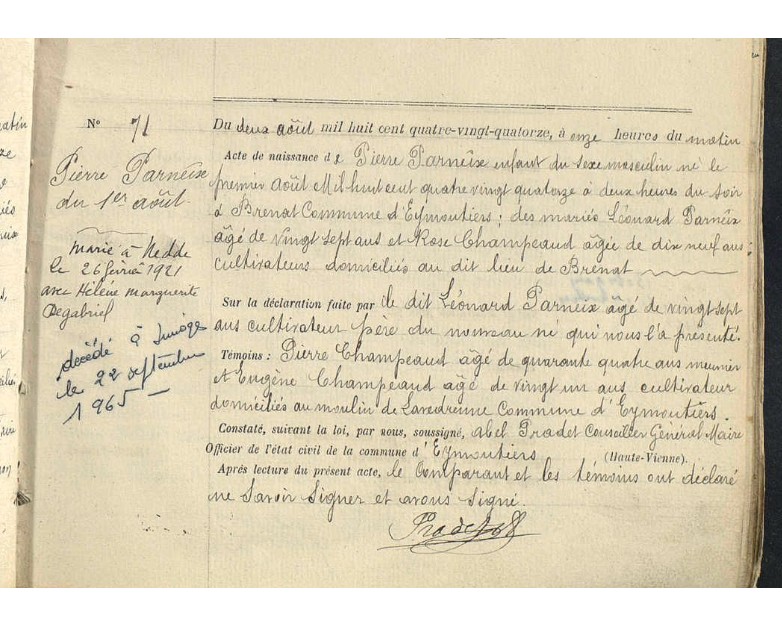 N° 71
Pierre Parneix
du 1er août.
marié à Nedde
le 26 février 1921
avec Hélène Marguerite
Degabriel
décédé à Limoges
le 22 septembre
1965 —
Du deux août mil huit cent quatre-vingt-quatorze, à onze heures du matin
Acte de naissance de Pierre Parneix enfant du sexe masculin né le
premier août Mil huit cent quatre vingt quatorze à deux heures du soir
à Brenat Commune d'Eymoutiers; des mariés Léonard Parneix
âgé de vingt sept ans et Rose Champeaud âgée de dix neuf ans;
cultivateurs domiciliés au dit lieu de Brenat
Sur la déclaration faite par le dit Léonard Parneix âgé de vingt sept
ans cultivateur père du nouveau né qui nous l'a présenté.
Témoins : Pierre Champeaud âgé de quarante quatre ans meunier
et Eugène Champeaud âgé de vingt un ans cultivateur
domiciliés au moulin de Commune d'Eymoutiers.
Constaté, suivant la loi, par nous, soussigné, Abel Pradet Conseiller Général Maire
Officier de l'état civil de la commune d'Eymoutiers (Haute-Vienne).
Après lecture du présent acte, le Comparant et les témoins ont déclaré
ne Savoir Signer et avons Signé.